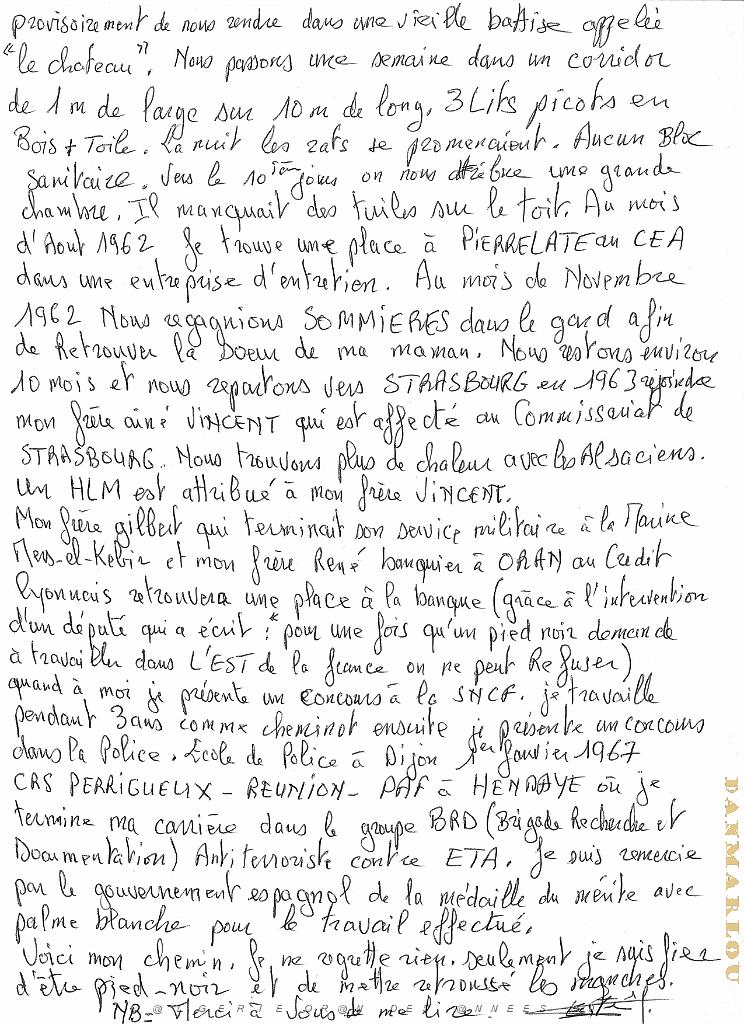 provisoirement de nous rendre dans une vieille battise appelée
"le chateau". Nous passons une semaine dans un corridor
de 1 m de large sur 10 m de long. 3 Lits picots en
Bois + Toile. La nuit les rats se promenaient. Aucun Bloc
sanitaire. Vers le 10ième jours on nous attribue une grande
chambre. Il manquait des tuiles sur le toit. Au mois
d'Aout 1962 Je trouve une place à PiERRELATE au CEA
dans une entreprise d'entretien. Au mois de Novembre
1962 Nous regagnions SOMMIERES dans le gard afin
de Retrouver la Soeur de ma maman. Nous restons environ
10 mois et nous repartons vers STRASBOURG en 1963 rejoindre
mon frère ainé ViNCENT qui est affecté au Commissariat de
STRASBOURG. Nous trouvons plus de chaleur avec les Alsaciens.
Un HLM est attribué à mon frère ViNCENT.
Mon frère gilbert qui terminait son service militaire à la Marine
Mers-el-Kebir et mon frère René banquier à ORAN au Credit
Lyonnais retrouvera une place à la banque (grâce à l'intervention
d'un député qui a écrit : "pour une fois qu'un pied noir demande
à travailler dans L'EST de la france on ne peut Refuser)
quand à moi je présente un concours à la SNCF. je travaille
pendant 3 ans comme cheminot ensuite je présente un concours
dans la Police. Ecole de Police à Dijon 1er Janvier 1967
CRS PERRIGUEUX - REUNION - PAF à HENDAYE où je
termine ma carrière dans le groupe BRD (Brigade Recherche et
Documentation) Antiterroriste contre ETA. Je suis remercie
par le gouvernement espagnol de la médaille du mérite avec
palme blanche pour le travail effectué.
Voici mon chemin. Je ne regrette rien. seulement je suis fier
d'être pied-noir et de mettre retroussé les manches.
NB = Merci à vous de me lire.
DANMARLOU